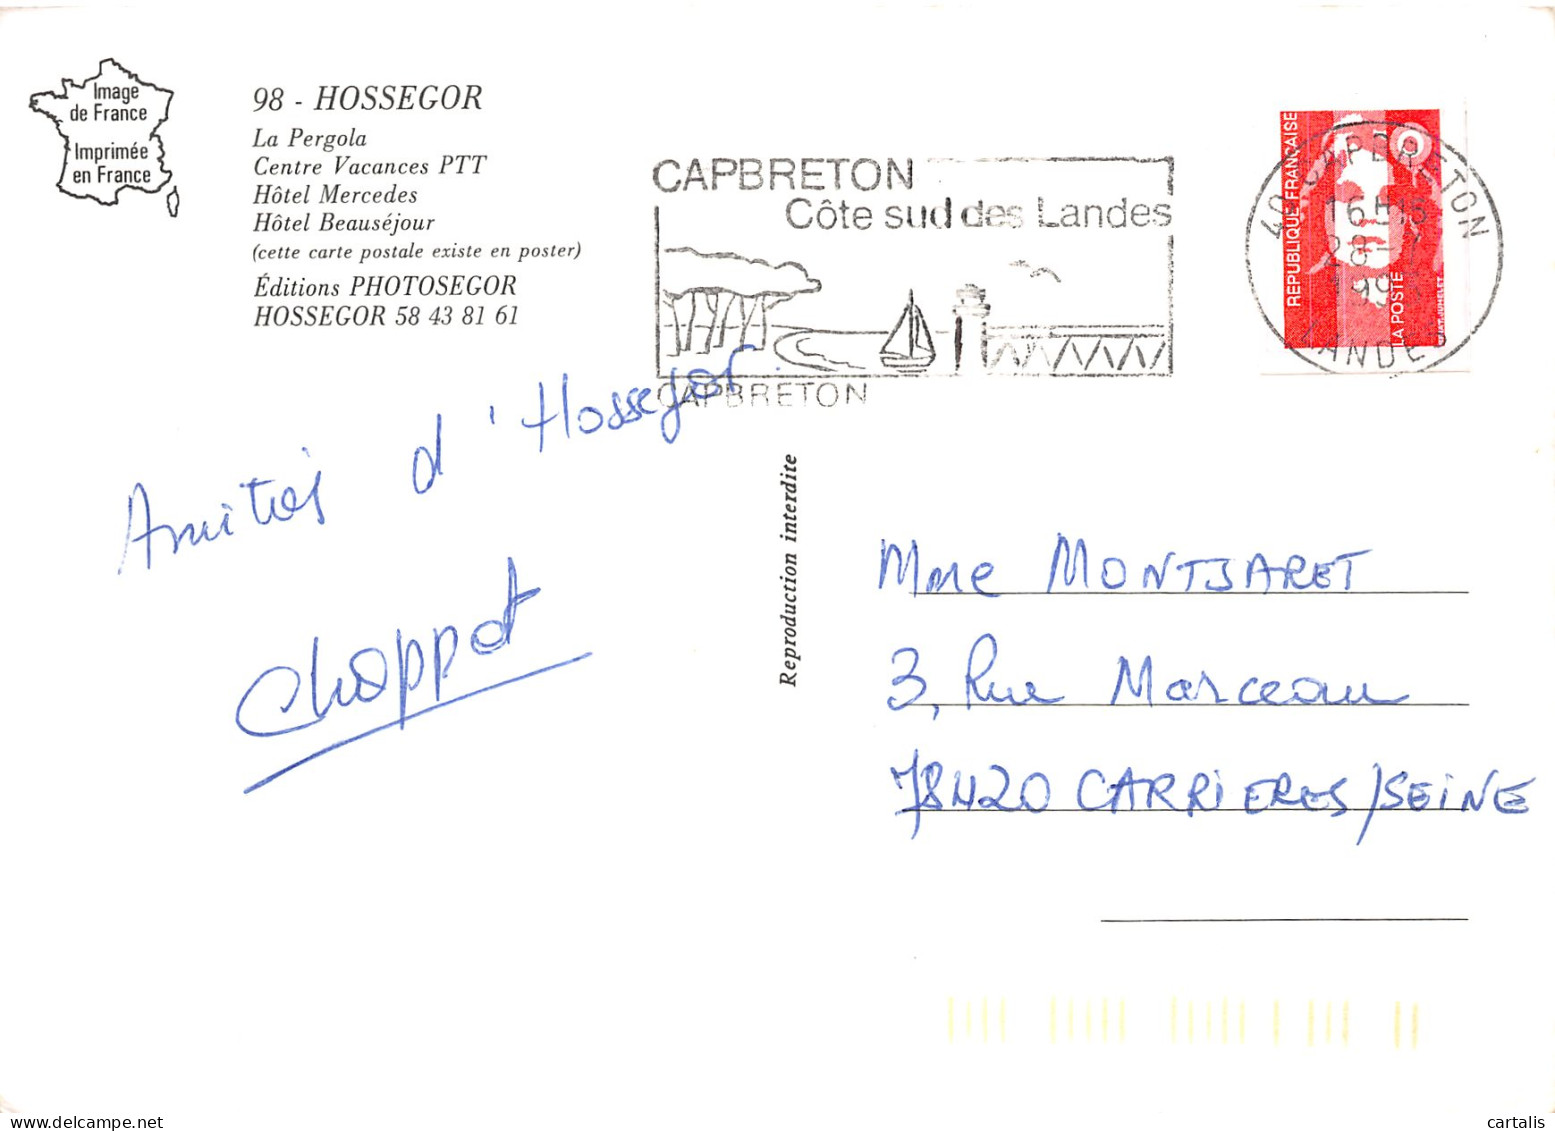 Image
de France
Imprimée
en France
98 - HOSSEGOR
La Pergola
Centre Vacances PTT
Hôtel Mercedes
Hôtel Beauséjour
(cette carte postale existe en poster)
Éditions PHOTOSEGOR
HOSSEGOR 58 43 81 61
CAPBRETON
Côte sud des Landes
CAPBRETON
REPUBLIQUE FRANÇAISE
LA POSTE
40 CAPBRETON
16H15
28-7
LANDES
Amitiés d'Hossegor.
Choppot
Reproduction interdite
Mme MONTJARET
3, Rue Marceau
78420 CARRIERES/SEINE
cartalis